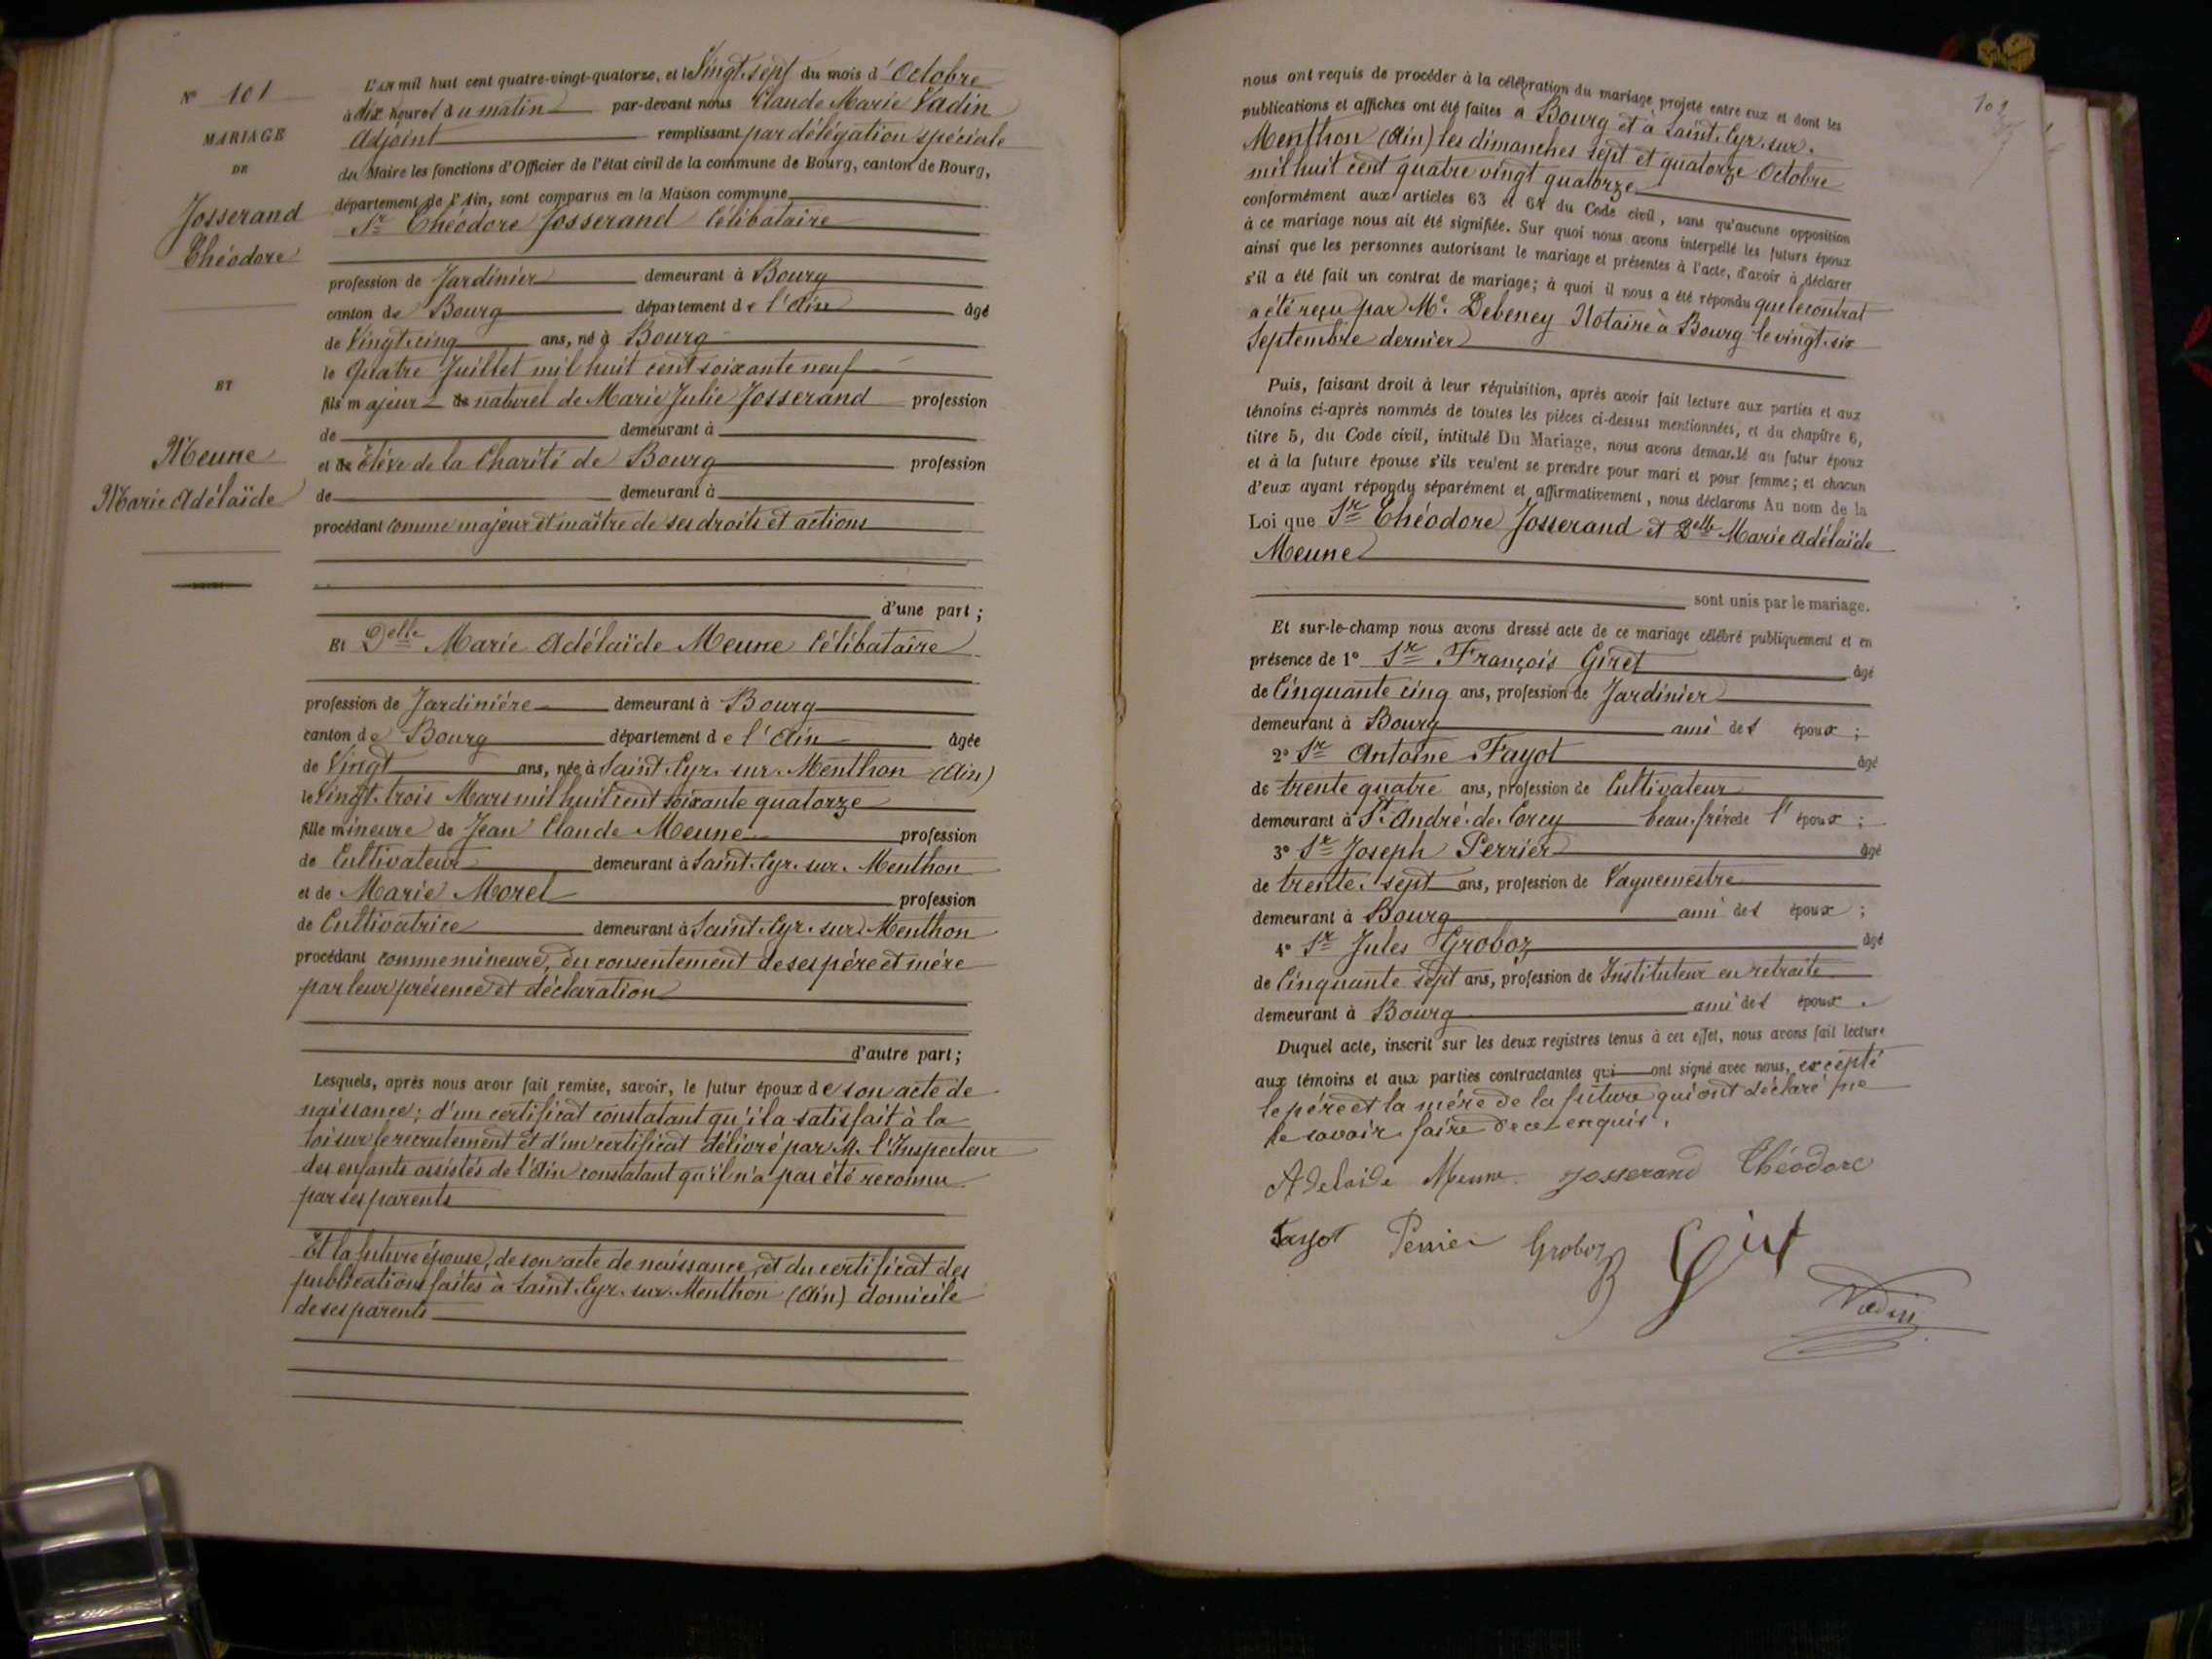 N° 101
MARIAGE
DE
Josserand
Théodore
ET
Meune
Marie Adélaïde
L'an mil huit cent quatre-vingt-quatorze, et le Vingt-sept du mois d'Octobre
à dix heures du matin par-devant nous Claude Marie Vadin
Adjoint remplissant par délégation spéciale
du Maire les fonctions d'Officier de l'état civil de la commune de Bourg, canton de Bourg,
département de l'Ain, sont comparus en la Maison commune
Sr Théodore Josserand Célibataire
profession de Jardinier demeurant à Bourg
canton de Bourg département de l'Ain âgé
de Vingt-cinq ans, né à Bourg
le Quatre Juillet mil huit cent soixante neuf
fils majeur de naturel de Marie Julie Josserand profession
de demeurant à
et de Élève de la Charité de Bourg profession
de demeurant à
procédant comme majeur et maître de ses droits et actions
d'une part ;
Et Delle Marie Adélaïde Meune Célibataire
profession de Jardinière demeurant à Bourg
canton de Bourg département de l'Ain âgée
de Vingt ans, née à Saint-Cyr-sur-Menthon (Ain)
le Vingt-trois Mars mil huit cent soixante quatorze
fille mineure de Jean Claude Meune profession
de Cultivateur demeurant à Saint-Cyr-sur-Menthon
et de Marie Morel profession
de Cultivatrice demeurant à Saint-Cyr-sur-Menthon
procédant comme mineure, du consentement de ses père et mère
par leur présence et déclaration
d'autre part ;
Lesquels, après nous avoir fait remise, savoir, le futur époux de son acte de
naissance ; d'un certificat constatant qu'il a satisfait à la
loi sur le recrutement et d'un certificat délivré par M. l'Inspecteur
des enfants assistés de l'Ain constatant qu'il n'a pas été reconnu
par ses parents
Et la future épouse, de son acte de naissance, et du certificat des
publications faites à Saint-Cyr-sur-Menthon (Ain) domicile
de ses parents
nous ont requis de procéder à la célébration du mariage projeté entre eux et dont les
publications et affiches ont été faites à Bourg et à Saint-Cyr-sur-
Menthon (Ain) les dimanches sept et quatorze Octobre
mil huit cent quatre vingt quatorze
conformément aux articles 63 et 64 du Code civil, sans qu'aucune opposition
à ce mariage nous ait été signifiée. Sur quoi nous avons interpellé les futurs époux
ainsi que les personnes autorisant le mariage et présentes à l'acte, d'avoir à déclarer
s'il a été fait un contrat de mariage ; à quoi il nous a été répondu que le contrat
a été reçu par Me. Debeney Notaire à Bourg le vingt-six
Septembre dernier
Puis, faisant droit à leur réquisition, après avoir fait lecture aux parties et aux
témoins ci-après nommés de toutes les pièces ci-dessus mentionnées, et du chapitre 6,
titre 5, du Code civil, intitulé Du Mariage, nous avons demandé au futur époux
et à la future épouse s'ils veulent se prendre pour mari et pour femme ; et chacun
d'eux ayant répondu séparément et affirmativement, nous déclarons Au nom de la
Loi que Sr Théodore Josserand et Delle Marie Adélaïde
Meune
sont unis par le mariage.
Et sur-le-champ nous avons dressé acte de ce mariage célébré publiquement et en
présence de 1° Sr François Giret âgé
de Cinquante cinq ans, profession de Jardinier
demeurant à Bourg ami des époux ;
2° Sr Antoine Fayot âgé
de trente quatre ans, profession de Cultivateur
demeurant à St André-de-Corcy beau-frère de l'époux ;
3° Sr Joseph Perrier âgé
de trente-sept ans, profession de Vaguemestre
demeurant à Bourg ami des époux ;
4° Sr Jules Groboz âgé
de Cinquante sept ans, profession de Instituteur en retraite
demeurant à Bourg ami des époux.
Duquel acte, inscrit sur les deux registres tenus à cet effet, nous avons fait lecture
aux témoins et aux parties contractantes qui ont signé avec nous, excepté
le père et la mère de la future qui ont déclaré ne
le savoir faire de ce enquis.
Adelaide Meune Josserand Théodore
Fayot Perrier Groboz Giret
Vadin